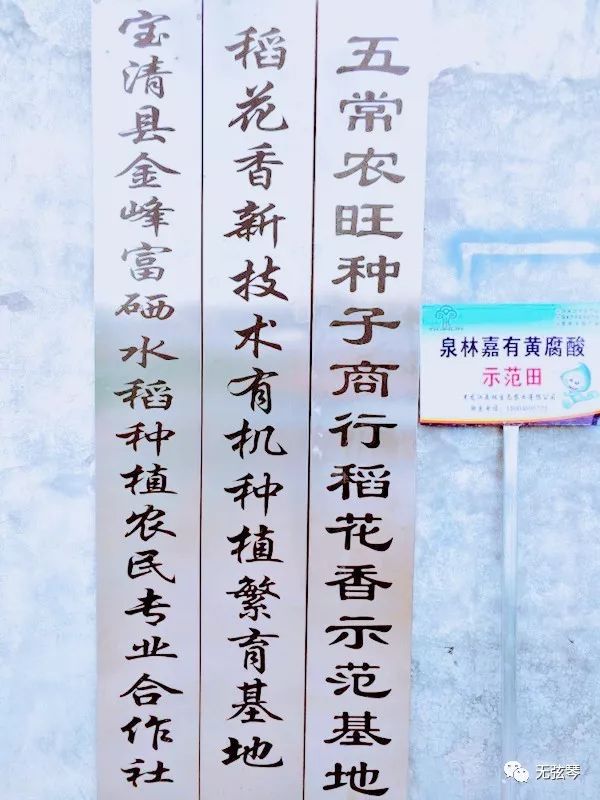 五常农旺种子商行稻花香示范基地
稻花香新技术有机种植繁育基地
宝清县金峰富硒水稻种植农民专业合作社
泉林嘉有黄腐酸
示范田
无弦琴